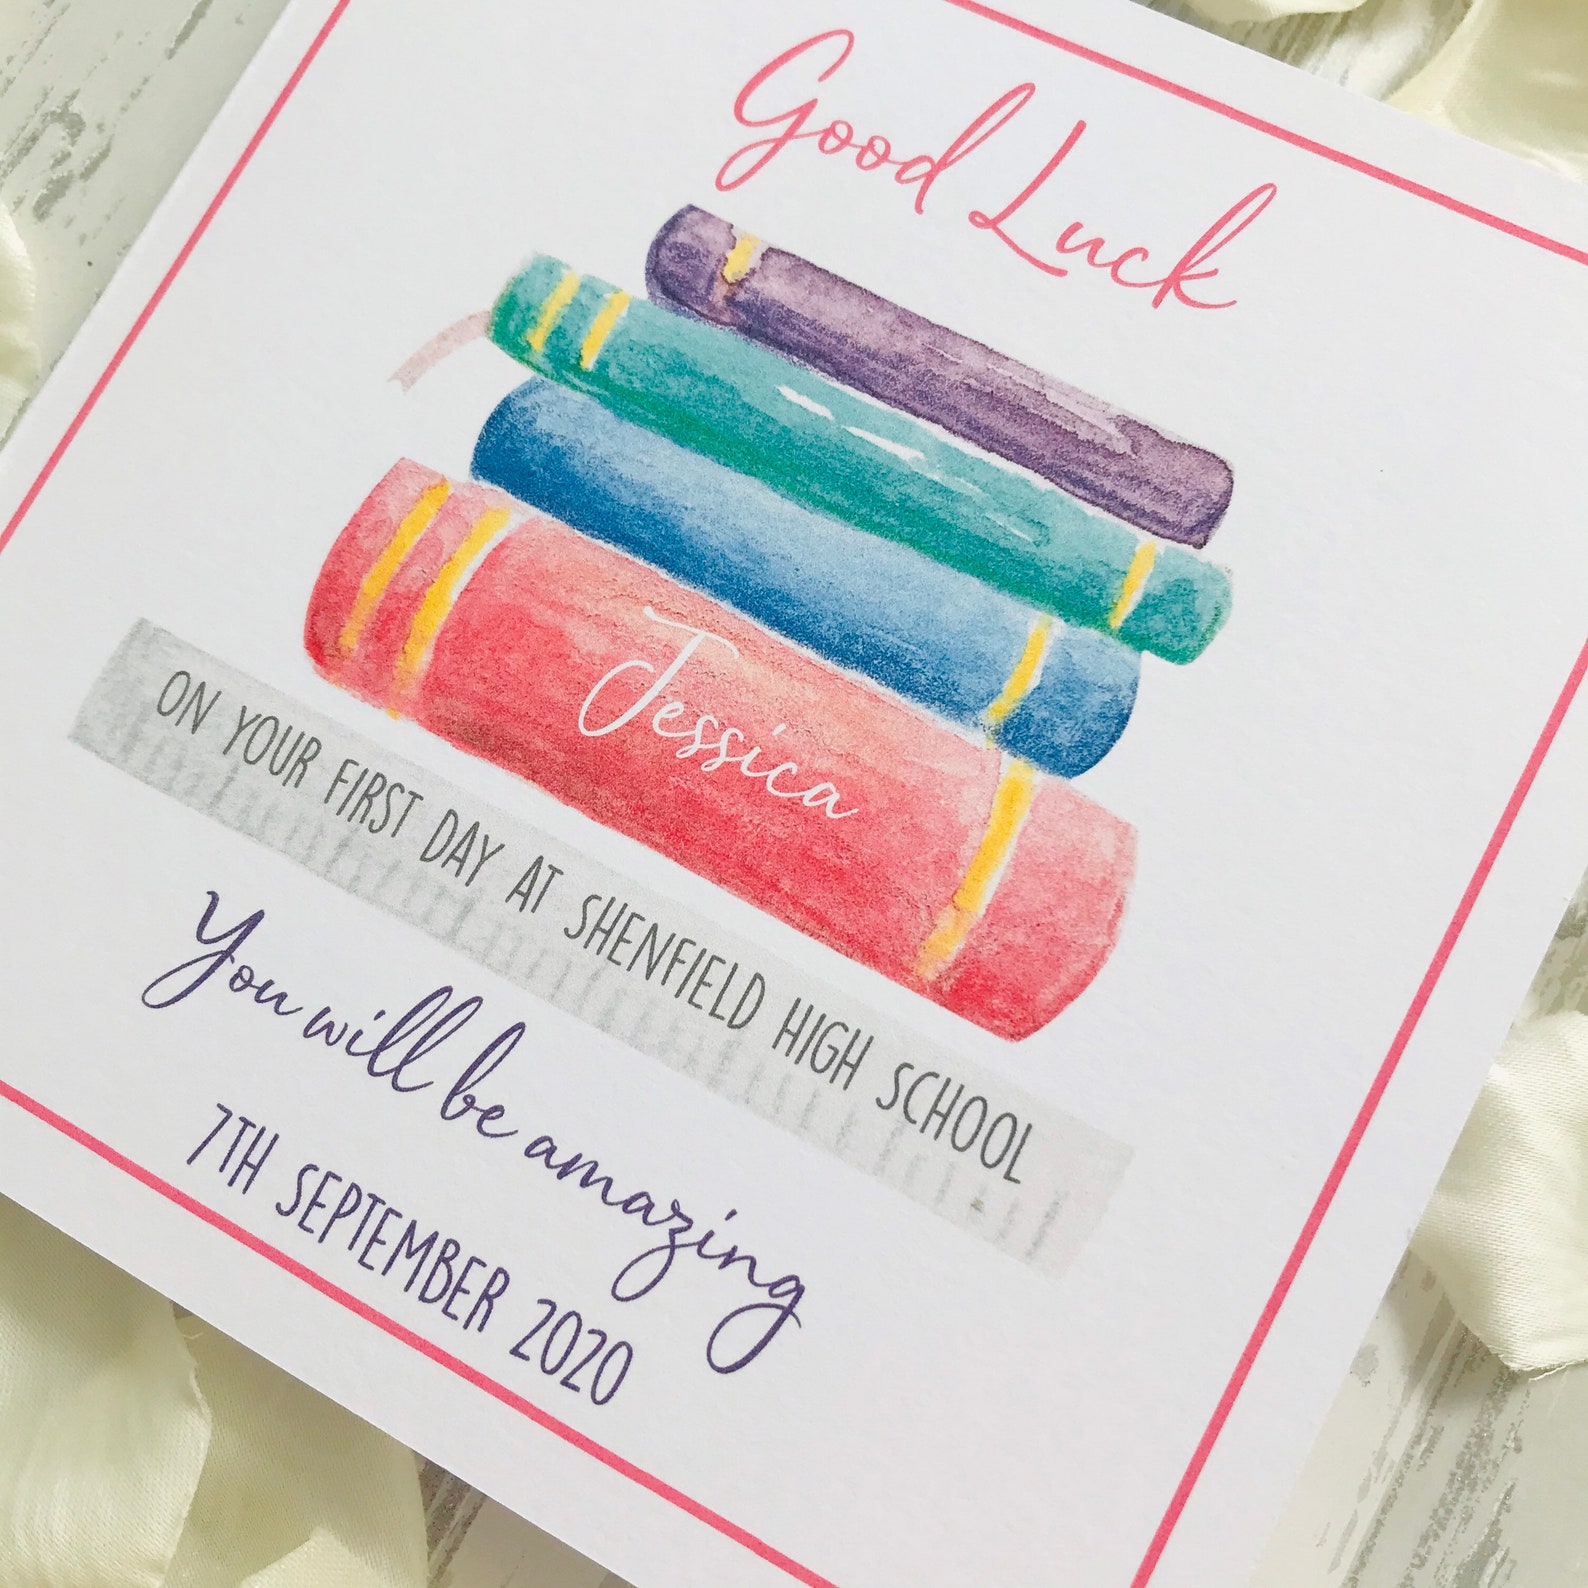 Good Luck
Jessica
ON YOUR FIRST DAY AT SHENFIELD HIGH SCHOOL
You will be amazing
7TH SEPTEMBER 2020